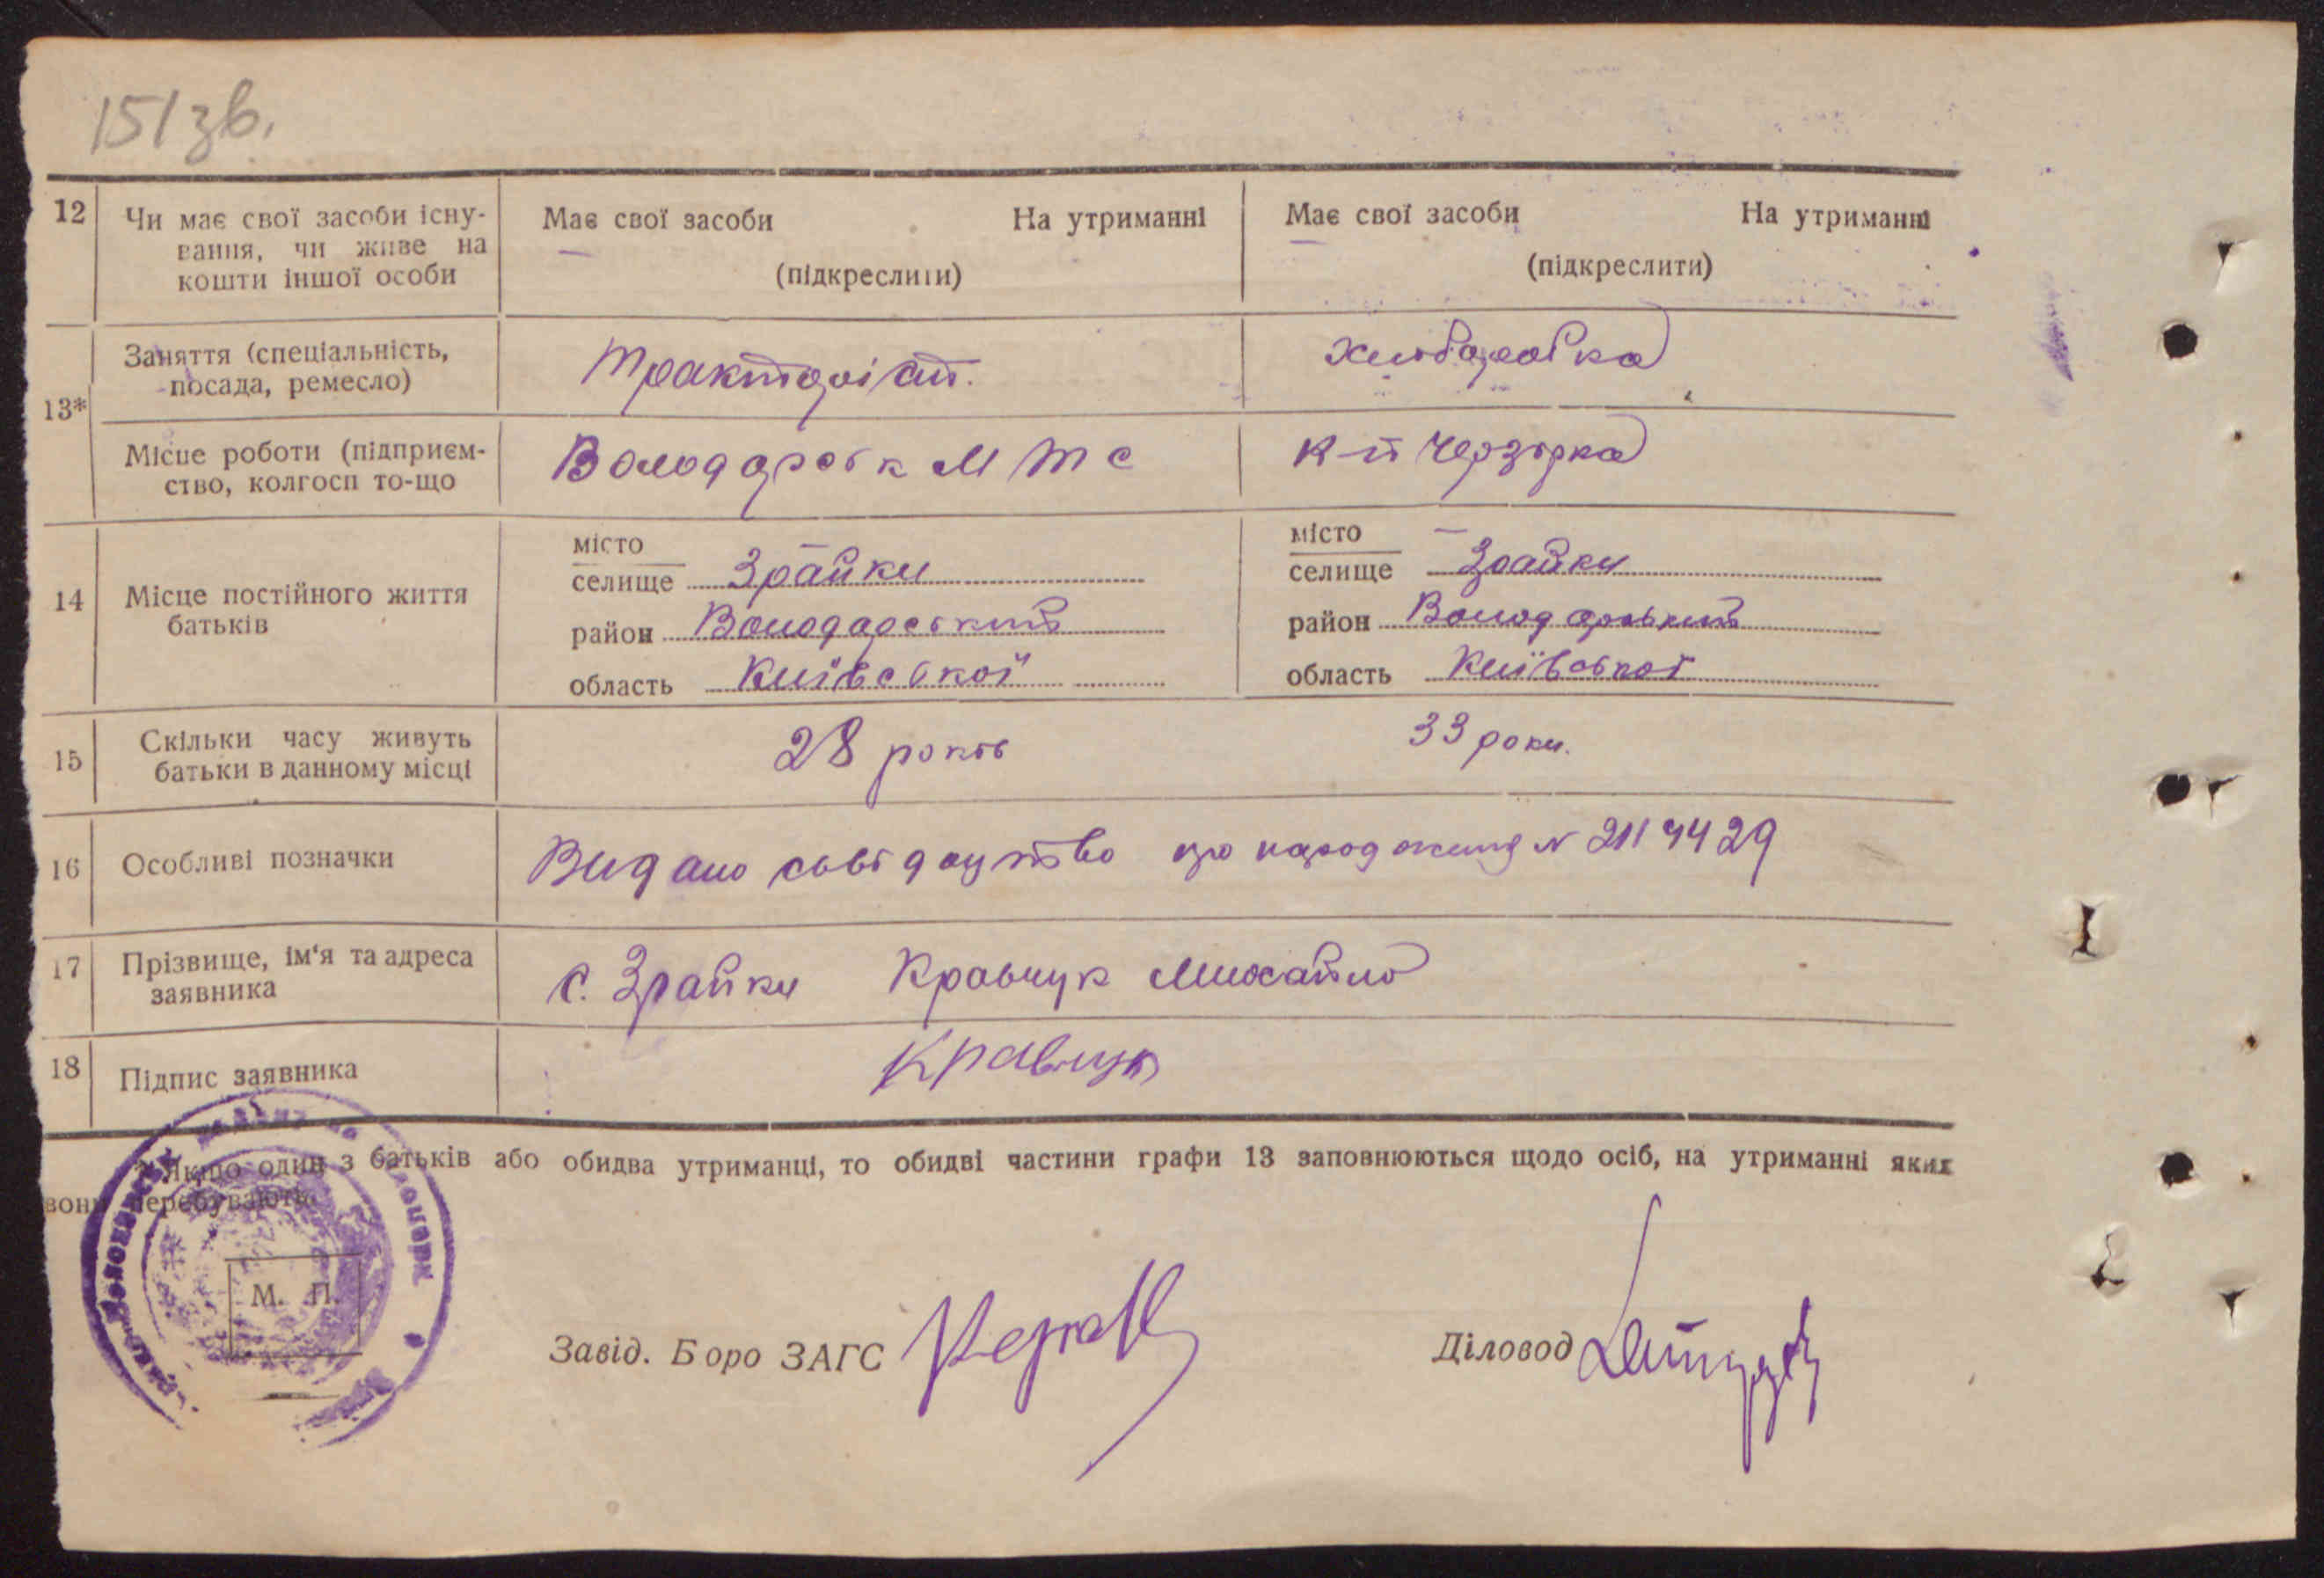 151зв.
12 Чи має свої засоби існу- Має свої засоби На утриманні Має свої засоби На утриманні
вання, чи живе на
кошти іншої особи (підкреслити) (підкреслити)
13* Заняття (спеціальність, Тракторіст. Хліборобка
посада, ремесло)
Місце роботи (підприєм- Володарськ М Т С к-п Червзірка
ство, колгосп то-що
14 Місце постійного життя місто місто
батьків селище Зрайки селище Зрайки
район Володарський район Володарський
область Київської область Київської
15 Скільки часу живуть 28 років 33 роки.
батьки в данному місці
16 Особливі позначки Видано свідоцтво про народження N 2114429
17 Прізвище, ім'я та адреса с. Зрайки Кравчук Михайло
заявника
18 Підпис заявника Кравчук
* Якщо один з батьків або обидва утриманці, то обидві частини графи 13 заповнюються щодо осіб, на утриманні яких
вони перебувають.
М. П.
Завід. Боро ЗАГС Діловод